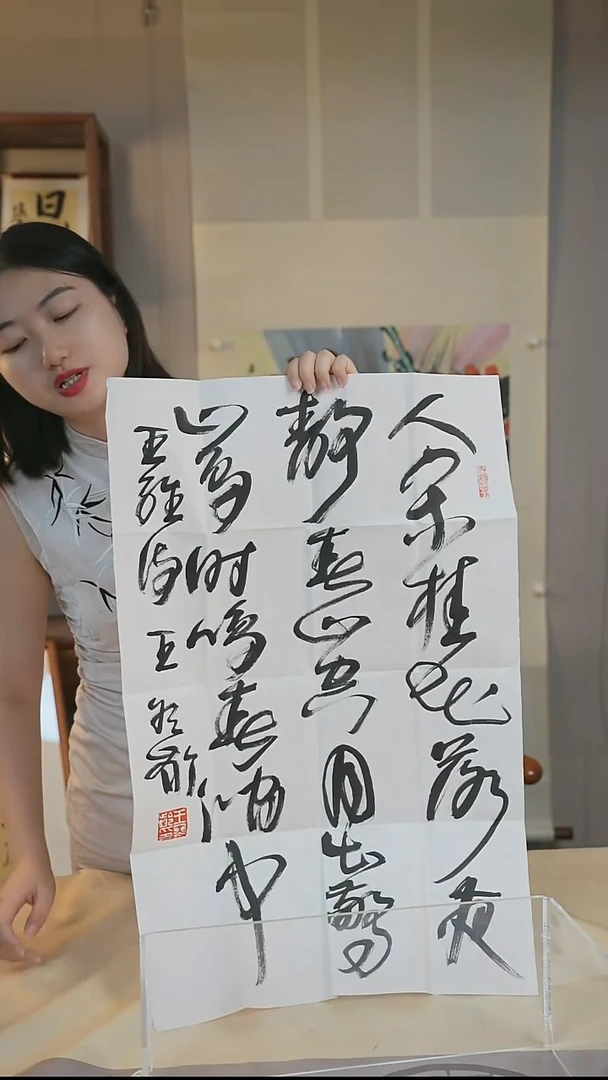 人闲桂花落夜
静春山空月出驚
山鸟时鸣春涧中
王维诗 王
日